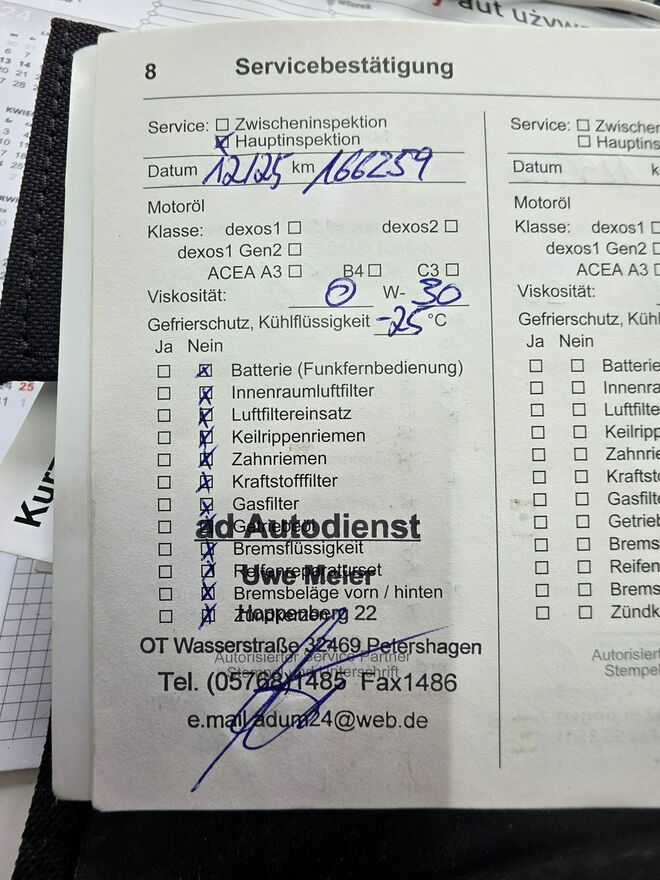 aut używ
8 Servicebestätigung
Service: ☐ Zwischeninspektion
☒ Hauptinspektion
Datum 12/25 km 166259
Motoröl
Klasse: dexos1 ☐ dexos2 ☐
dexos1 Gen2 ☐
ACEA A3 ☐ B4 ☐ C3 ☐
Viskosität: 0 W- 30
Gefrierschutz, Kühlflüssigkeit -25 °C
Ja Nein
☐ ☒ Batterie (Funkfernbedienung)
☐ ☒ Innenraumluftfilter
☐ ☒ Luftfiltereinsatz
☐ ☒ Keilrippenriemen
☐ ☒ Zahnriemen
☐ ☒ Kraftstofffilter
☐ ☒ Gasfilter
☐ ☒ Getriebeöl
ad Autodienst
☐ ☒ Bremsflüssigkeit
☐ ☒ Reifenreparaturset
Uwe Meier
☐ ☒ Bremsbeläge vorn / hinten
☐ ☒ Zündkerzen
Hoppenberg 22
OT Wasserstraße 32469 Petershagen
Autorisierter Service Partner
Stempel und Unterschrift
Tel. (05768) 1485 Fax1486
e.mail adum24@web.de
Service: ☐ Zwischen
☐ Hauptins
Datum k
Motoröl
Klasse: dexos1 ☐
dexos1 Gen2 ☐
ACEA A3 ☐
Viskosität:
Gefrierschutz, Kühlfl
Ja Nein
☐ ☐ Batterie
☐ ☐ Innenra
☐ ☐ Luftfilte
☐ ☐ Keilripp
☐ ☐ Zahnrie
☐ ☐ Kraftsto
☐ ☐ Gasfilte
☐ ☐ Getrieb
☐ ☐ Brems
☐ ☐ Reifen
☐ ☐ Brems
☐ ☐ Zündk
Autorisie
Stempel
Kur